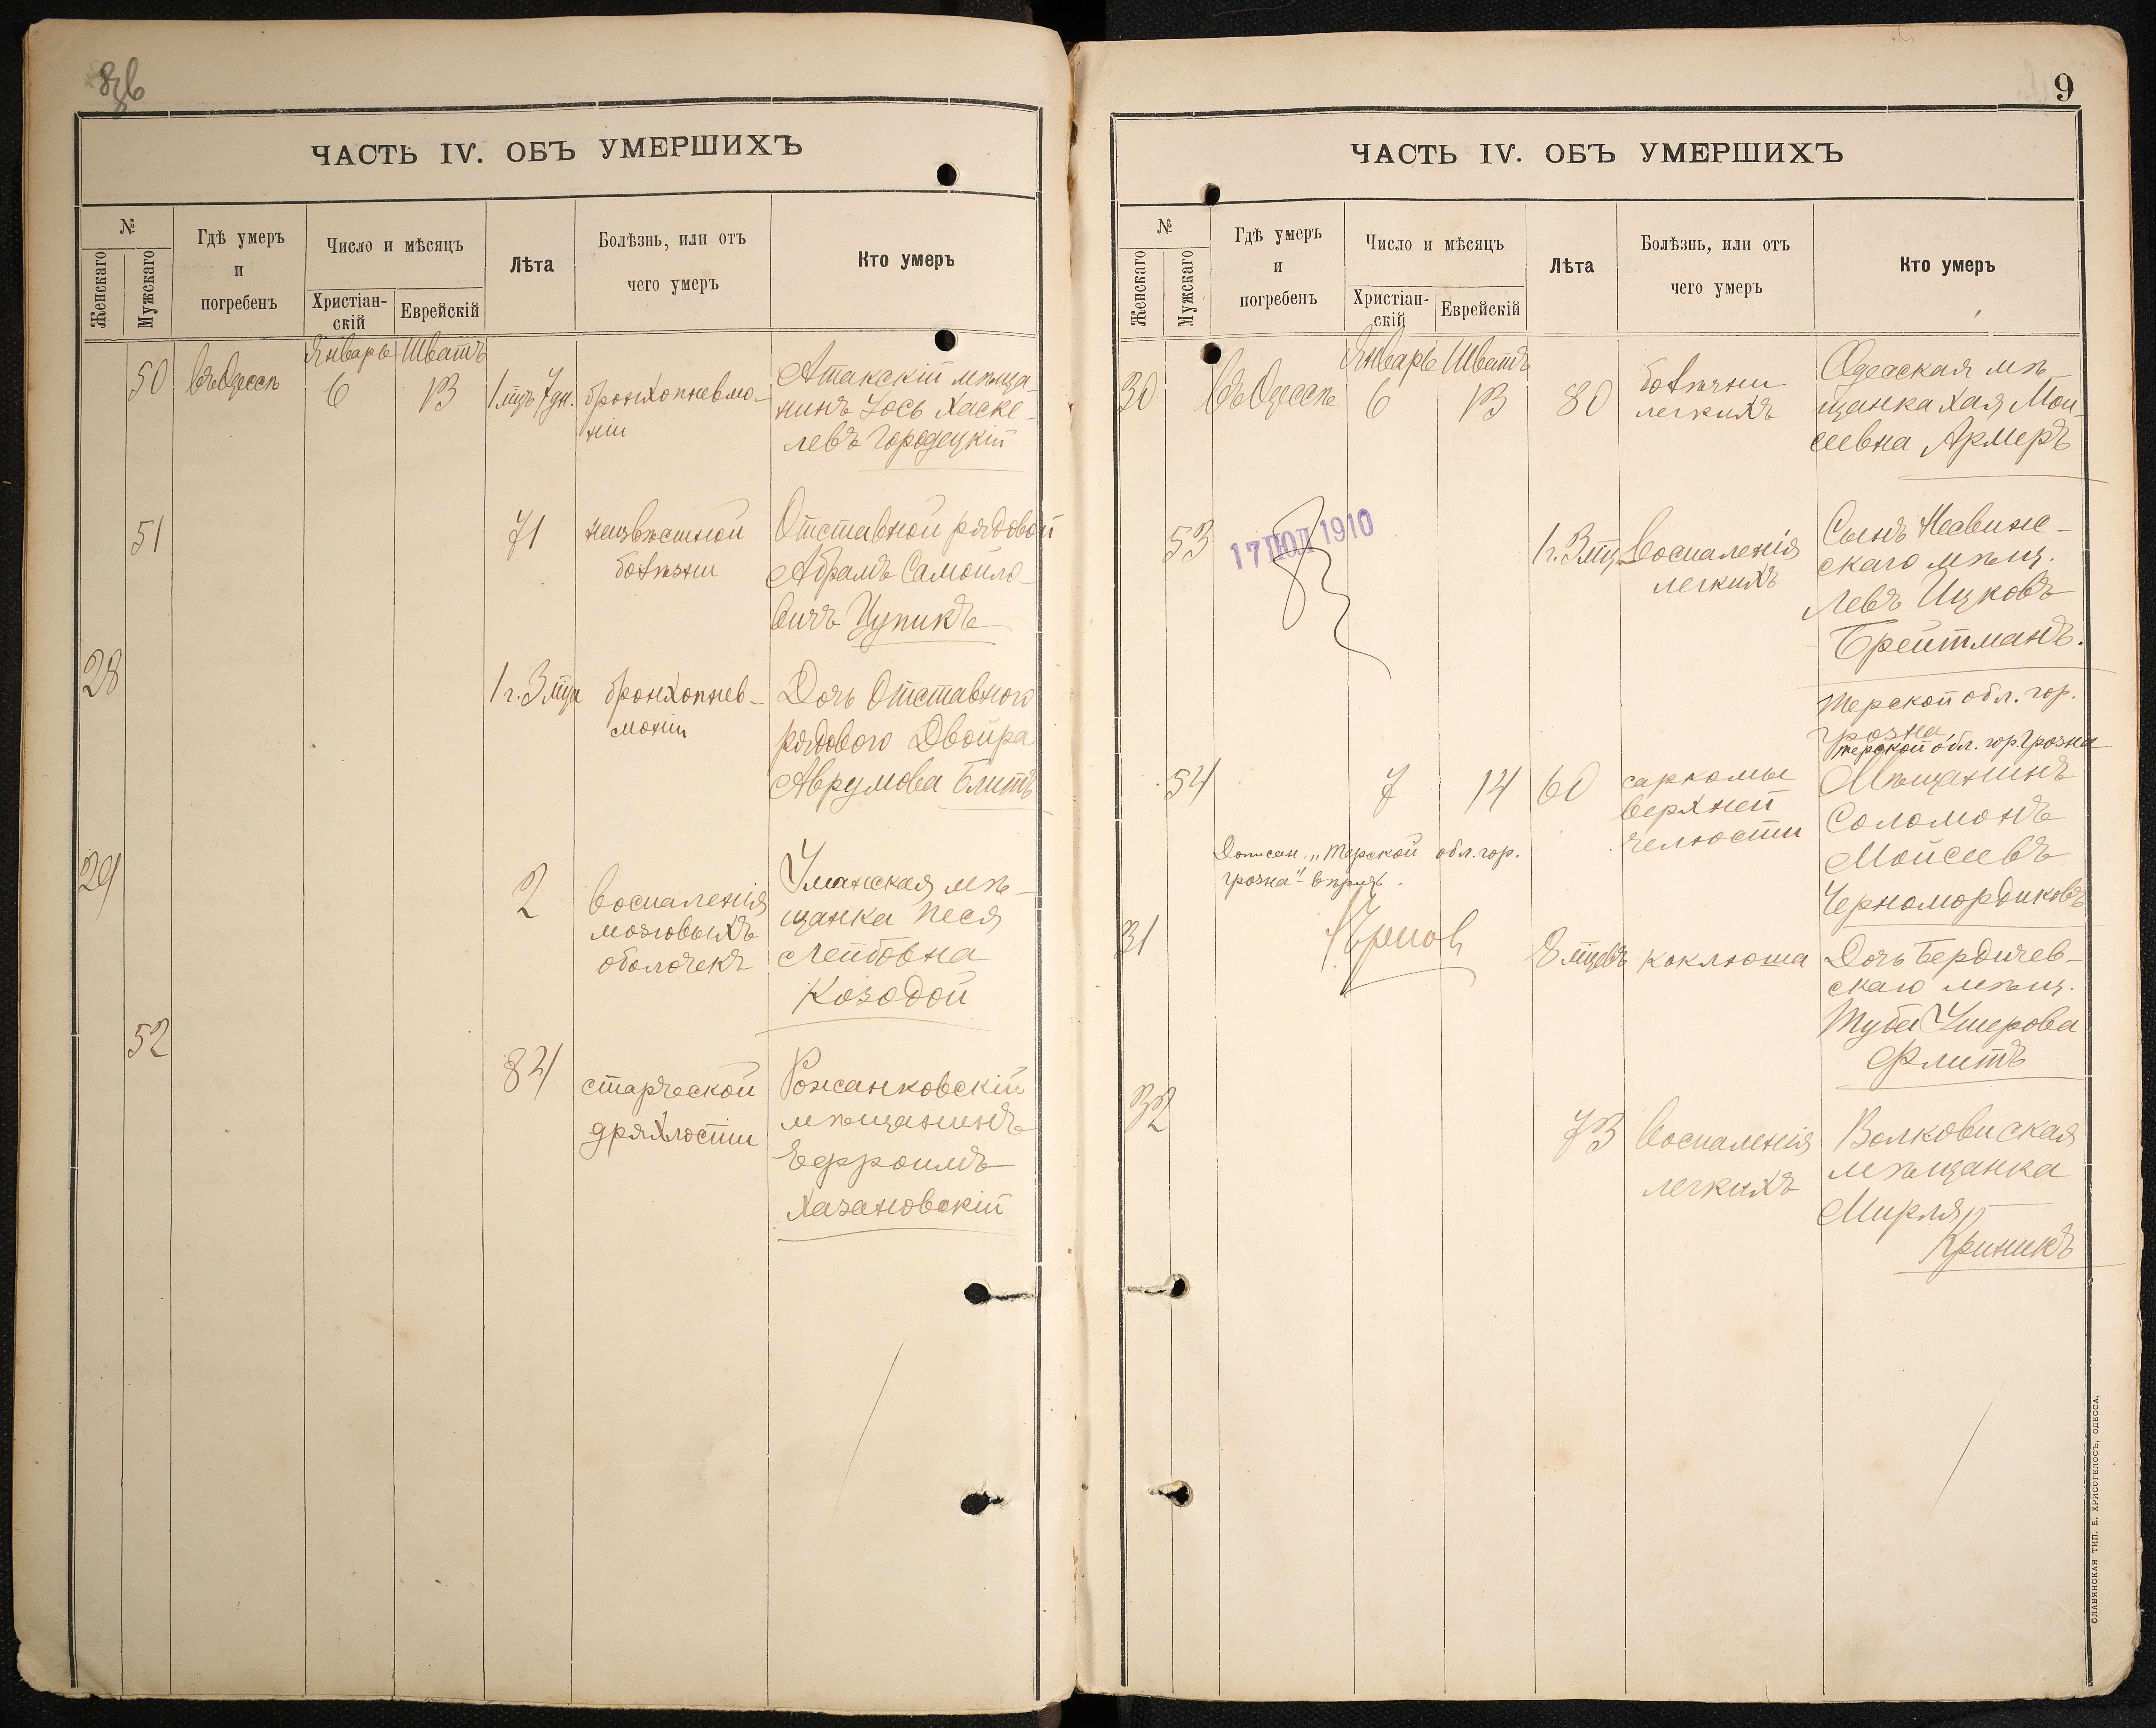 8 зв
ЧАСТЬ IV. ОБЪ УМЕРШИХЪ
№
Женскаго
Мужскаго
Гдѣ умеръ
и
погребенъ
Число и мѣсяцъ
Христіан-
скій
Еврейскій
Лѣта
Болѣзнь, или отъ
чего умеръ
Кто умеръ
Январь Шватъ
50 въ Одессѣ 6 13 1 мцъ 7 дн. бронхопневмо-
ніи
Атакскій мѣща-
нинъ Іось Хаске-
левъ Городецкій
51 71 неизвѣстной
болѣзни
Отставной рядовой
Абрамъ Самойло-
вичъ Цупикъ
28 1 г. 3 мца бронхопнев-
моніи
Дочь Отставного
рядового Двойра
Аврумова Блитъ
29 2 воспаленія
мозговыхъ
оболочекъ
Уманская мѣ-
щанка Песя
Лейбовна
Козодой
52 84 старческой
дряхлости
Рожанковскій
мѣщанинъ
Ефроимъ
Хазановскій
9
ЧАСТЬ IV. ОБЪ УМЕРШИХЪ
№
Женскаго
Мужскаго
Гдѣ умеръ
и
погребенъ
Число и мѣсяцъ
Христіан-
скій
Еврейскій
Лѣта
Болѣзнь, или отъ
чего умеръ
Кто умеръ
Январь Шватъ
30 Въ Одессѣ 6 13 80 болѣзни
легкихъ
Одесская мѣ-
щанка Хая Мои-
сеевна Армеръ
53 17 ІЮЛ 1910 1 г. 3 мц. Воспаленія
легкихъ
Сынъ
скаго мѣщ.
Левъ Ицковъ
Брейтманъ.
Терской обл. гор.
Грозна
терской обл. гор. Грозна
54 7 14 60 саркомы
верхней
челюсти
Мѣщанинъ
Соломонъ
Мойсеевъ
Черномордиковъ
Дописан. „Терской обл. гор.
Грозна"
31 8 мцевъ коклюша
Дочь Бердичев-
скаго мѣщ.
Туба Ушерова
Флитъ
32 73 Воспаленія
легкихъ
Волковиская
мѣщанка
Мирля
Криникъ
СЛАВЯНСКАЯ ТИП. Е. ХРИСОГЕЛОСЪ, ОДЕССА.